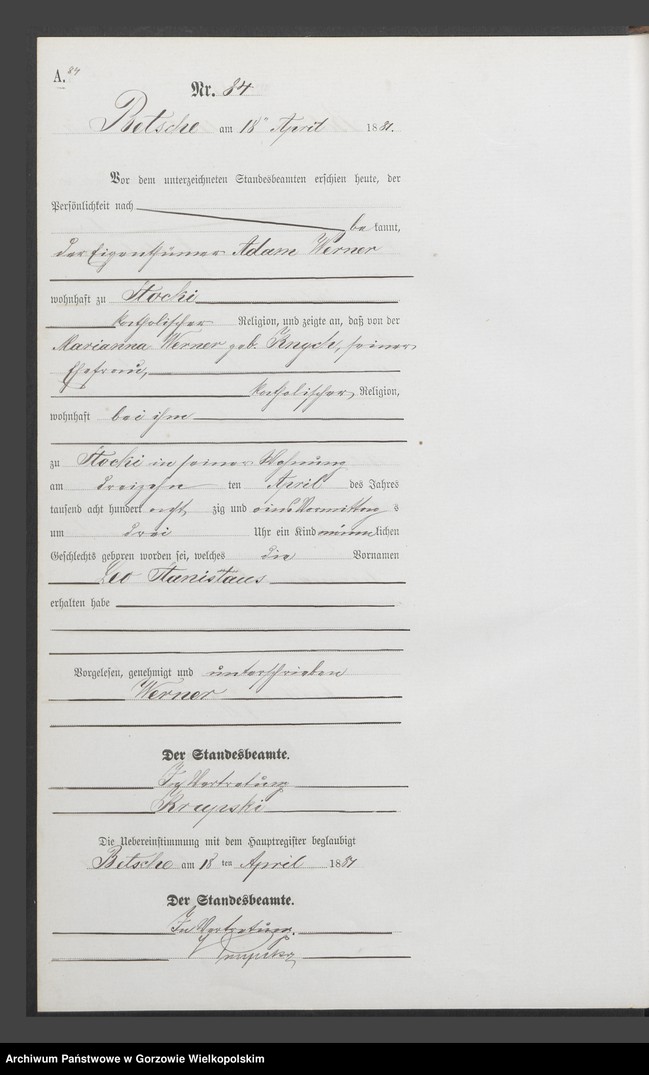 A. 84
Nr. 84
Betsche am 18n April 1881.
Vor dem unterzeichneten Standesbeamten erschien heute, der
Persönlichkeit nach
be kannt,
der Eigenthümer Adam Werner
wohnhaft zu Stocki
katholischer Religion, und zeigte an, daß von der
Marianna Werner geb. Knych, seiner
Ehefrau,
katholischer Religion,
wohnhaft bei ihm
zu Stocki in seiner Wohnung
am dreizehn ten April des Jahres
tausend acht hundert acht zig und eins Vormittag s
um drei Uhr ein Kind männlichen
Geschlechts geboren worden sei, welches die Vornamen
Leo Stanislaus
erhalten habe
Vorgelesen, genehmigt und unterschrieben
Werner
Der Standesbeamte.
In Vertretung
Krupski
Die Uebereinstimmung mit dem Hauptregister beglaubigt
Betsche am 18 ten April 1881
Der Standesbeamte.
In Vertretung.
Krupski
Archiwum Państwowe w Gorzowie Wielkopolskim